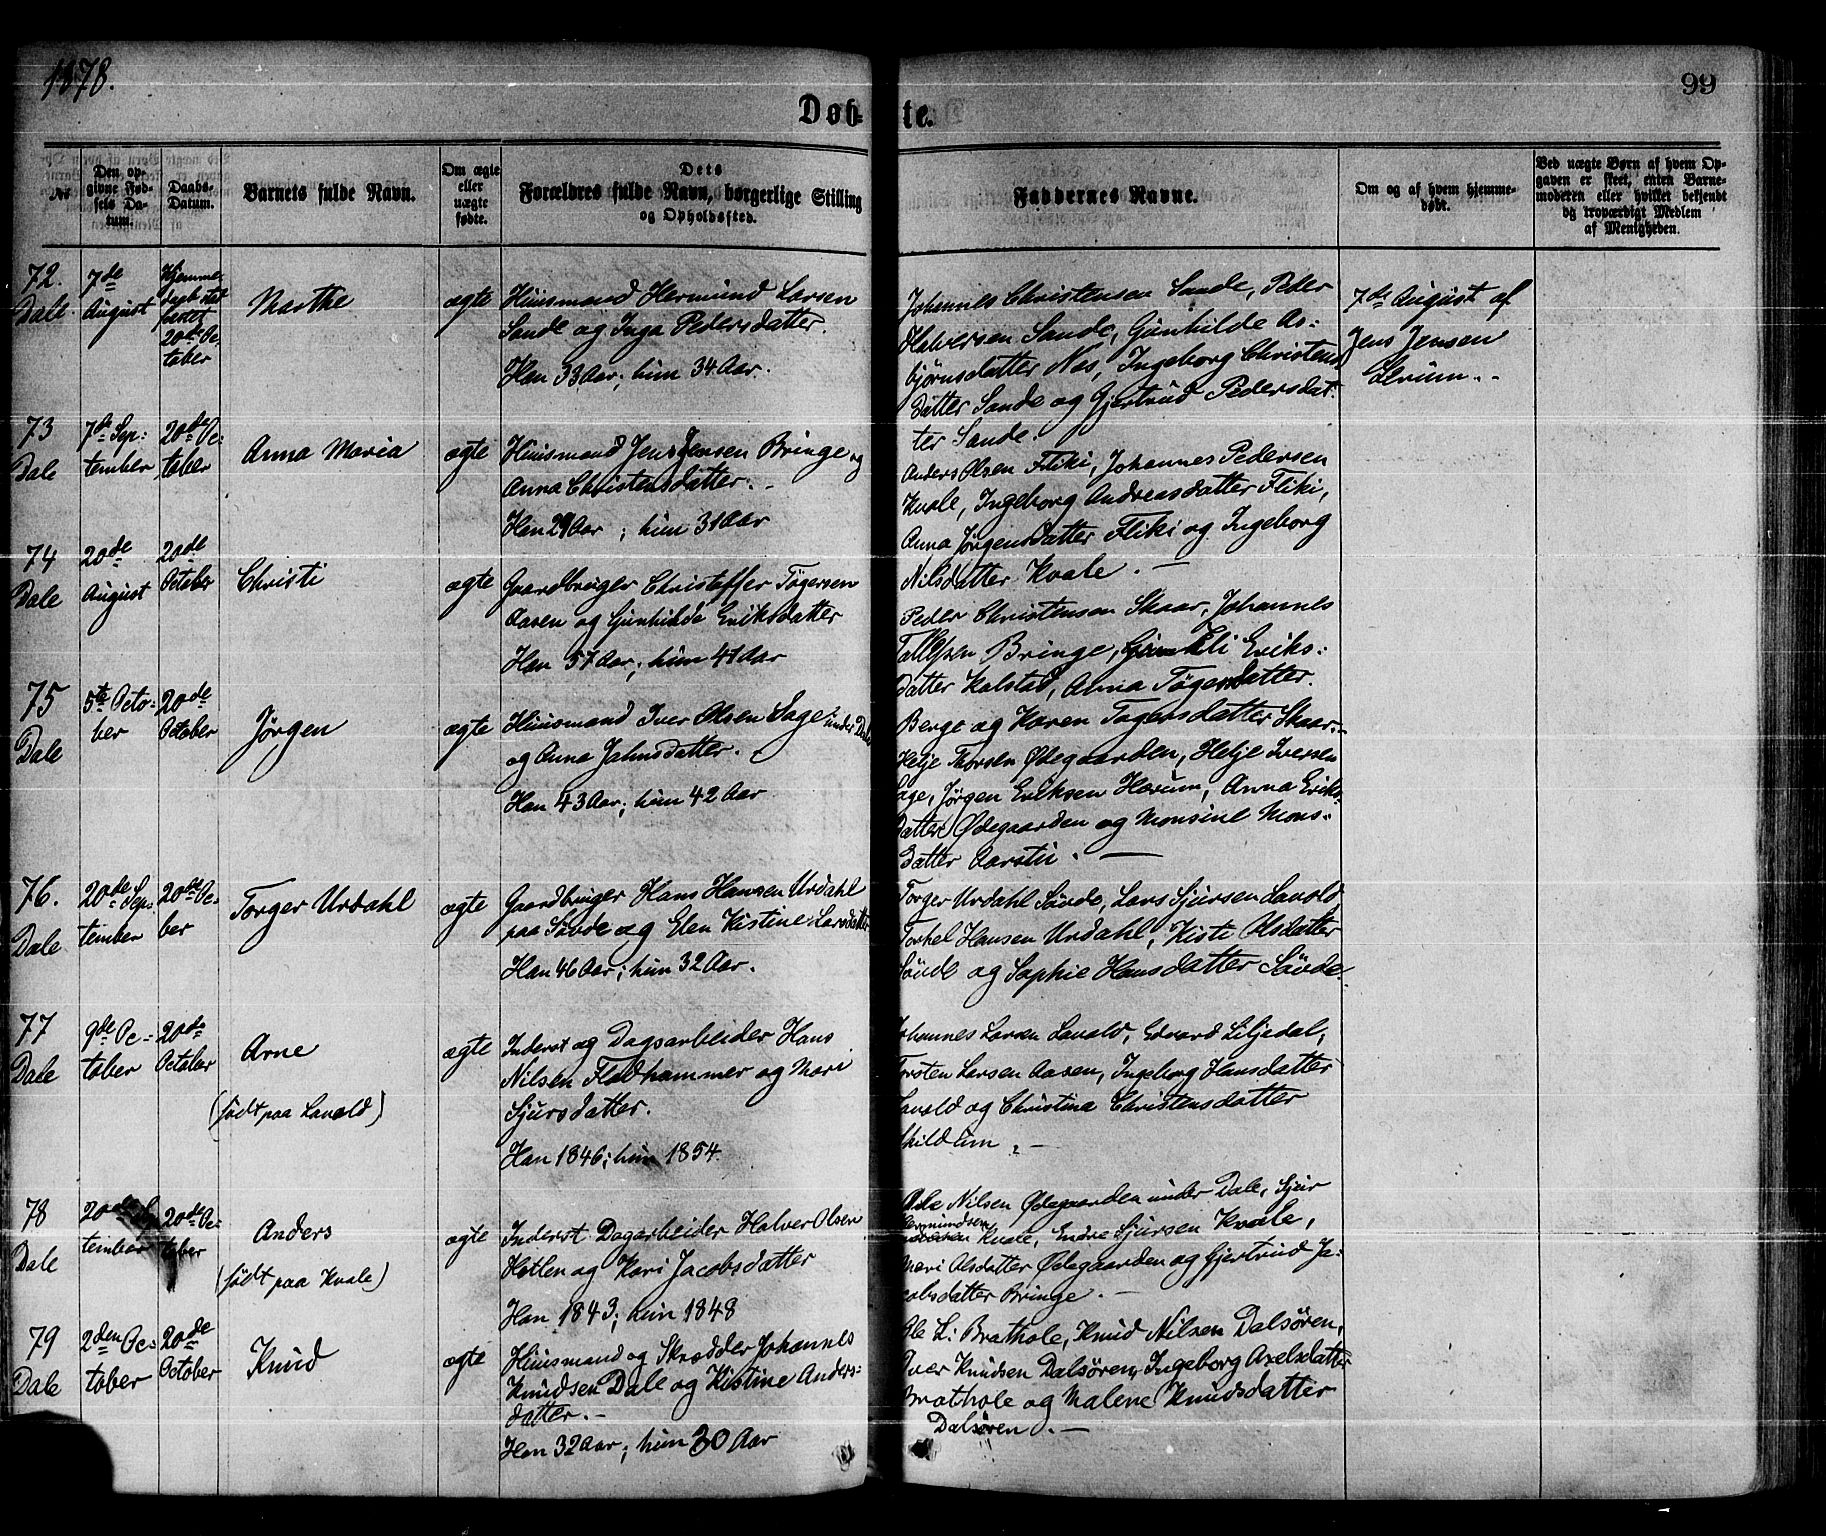 1878.
99
Døb-te.
No
Den op-
givne Fød-
sels Da-
tum.
Daabs-
Datum.
Barnets fulde Navn.
Om ægte
eller
uægte
fødte.
Dets
Forældres fulde Navn, borgerlige Stilling
og Opholdssted.
Faddernes Navne.
Om og af hvem hjemme-
døbt.
Ved uægte Børn af hvem Op-
gaven er skeet, enten Barne-
moderen eller hvilket bekjendt
og troværdigt Medlem
af Menigheden.
72.
Dale.
7de
August
Hjemme-
daab stad
fæstet
20de Oc
tober
Marthe
ægte
Huusmand Hermund Larsen
Sande og Inga Pedersdatter.
Han 33 Aar; hun 34 Aar.
Johannes Christensen Sande, Peder
Halversen Sande, Gunhilde As-
bjørnsdatter Næs, Ingeborg Christens
datter Sande og Gjertrud Pedersdat-
ter Sande.
7de August af
Jens Jensen
73
Dale
7de Sep-
tember
20de Oc-
tober
Anna Maria
ægte
Huusmand Jens Jensen Bringe og
Anna Christensdatter. -
Han 29 Aar; hun 31 Aar
Anders Olsen Fliki, Johannes Pedersen
Kvale, Ingeborg Andreasdatter Fliki,
Anna Jørgensdatter Fliki og Ingeborg
Nilsdatter Kvale. -
74
Dale
20de
August
20de
October
Christi
ægte
Gaardbruger Christoffer Tøgersen
Aasen og Gunhilde Eriksdatter
Han 51 Aar; hun 41 Aar
Peder Christensen Skaar, Johannes
Bringe, Eriks-
datter Kalstad, Anna Tøgersdatter
Berge og Karen Tøgersdatter Skaar. -
75
Dale
5te Octo-
ber
20de
October
Jørgen
ægte
Huusmand Iver Olsen Sage under Dale
og Anna Jahnsdatter. -
Han 43 Aar; hun 42 Aar
Helje Thorsen Ødegaarden, Helje Iversen
Sage, Jørgen Eriksen Hærum, Anna Eriks-
datter Ødegaarden og Monsine Mons-
datter Aarstii. -
76.
Dale
20de Sep-
tember
20de Oc-
ber
Torger Urdahl
ægte
Gaardbruger Hans Hansen Urdahl
paa Søvde og Elen Kistine Larsdatter
Han 46 Aar; hun 32 Aar.
Torger Urdahl Søvde, Lars Sjursen Lavold
Torkel Hansen Urdahl, Kisti Olsdatter
Søvde og Sophie Hansdatter Søvde.
77
Dale
9de Oc-
tober
20de
October
Arne
(født paa Lavold)
ægte
Inderst og Dagsarbeider Hans
Nilsen Flodhammer og Mari
Sjursdatter.
Han 1846; hun 1854.
Johannes Larsen Lavold, Edvard Liljedal,
Torsten Larsen Aasen, Ingeborg Hansdatter
Lavold og Christina Christensdatter
Skildum. -
78
Dale
20de Sep
tember
20de Oc-
tober
Anders
(født paa Kvale)
ægte
Inderst Dagarbeider Halver Olsen
Hetlen og Kari Jacobsdatter
Han 1843; hun 1848
Ole Nilsen Ødegaarden under Dale, Sjur
Hermundsen
Kvale, Endre Sjursen Kvale,
Mari Olsdatter Ødegaarden og Gjertrud Ja-
cobsdatter Bringe. -
79
Dale
2den Oc-
tober
20de
October
Knud
ægte
Huusmand og Skrædder Johannes
Knudsen Dale og Kistine Anders-
datter. -
Han 32 Aar; hun 30 Aar
Ole L: Brathole, Knud Nilsen Dalsøren,
Iver Knudsen Dalsøren, Ingeborg Axelsdatter
Brathole og Malene Knudsdatter
Dalsøren. -